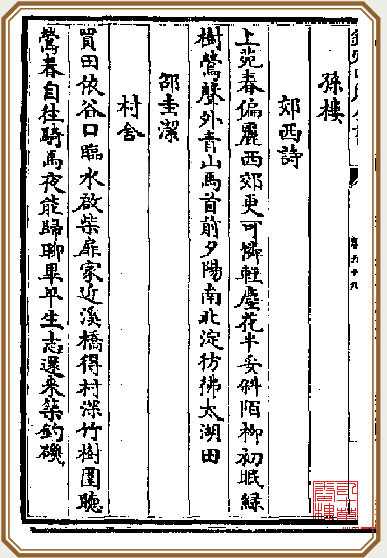 孫樓
郊西詩
上苑春偏麗西郊更可憐輕塵花半妥斜陌柳初眠緑
樹鶯聲外青山馬首前夕陽南北淀彷彿太湖田
邵圭潔
村舍
買田依谷口臨水啟柴扉家近溪橋得村深竹樹圍聽
鶯春自往騎馬夜能歸聊畢平生志還來築釣磯